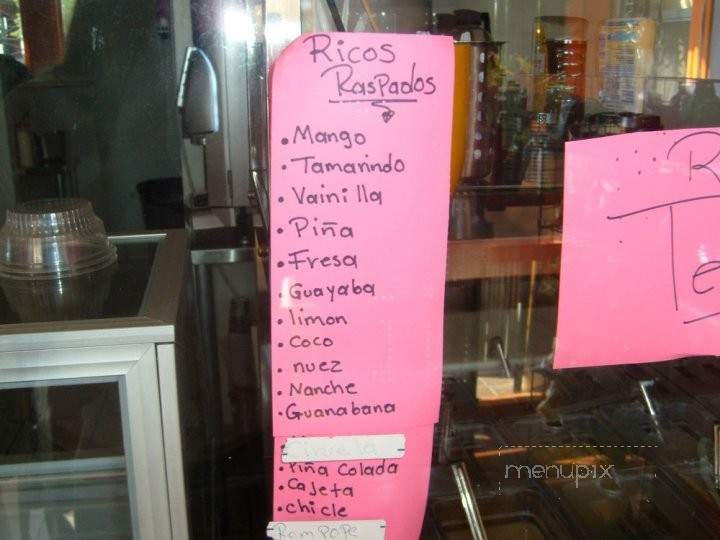 Ricos
Raspados
• Mango
• Tamarindo
• Vainilla
• Piña
• Fresa
• Guayaba
• limon
• coco
• nuez
• Nanche
• Guanabana
Ciruela
• Piña Colada
• Cajeta
• chicle
Rompope
R
Te
menupix